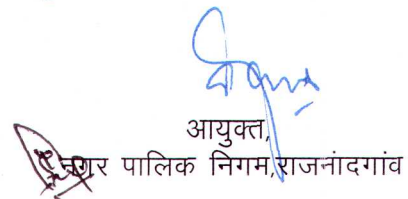 आयुक्त,
नगर पालिक निगम,राजनांदगांव